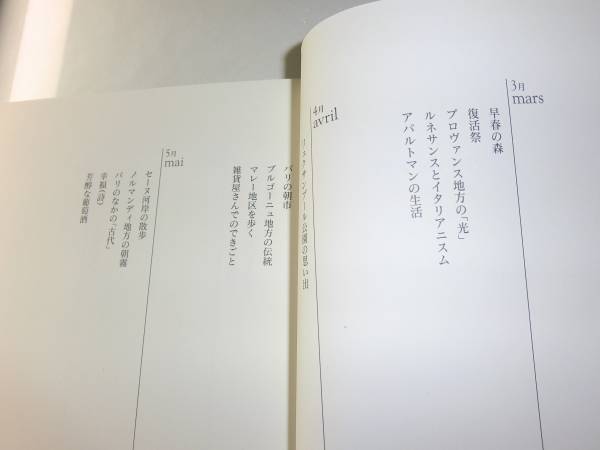 3月
mars
早春の森
復活祭
プロヴァンス地方の「光」
ルネサンスとイタリアニスム
アパルトマンの生活
4月
avril
リュクサンブール公園の思い出
パリの朝市
ブルゴーニュ地方の伝統
マレー地区を歩く
雑貨屋さんでのできごと
5月
mai
セーヌ河岸の散歩
ノルマンディ地方の朝霧
パリのなかの「古代」
幸福(詩)
芳醇な葡萄酒